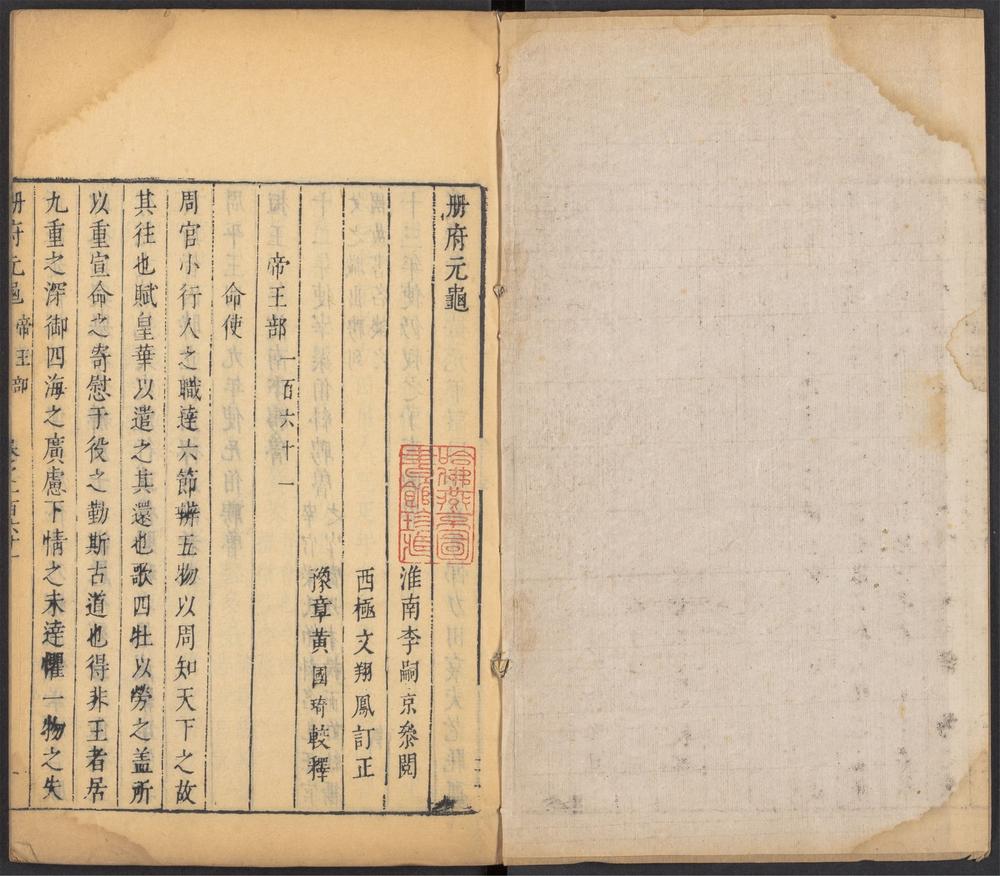 册府元龜
淮南李嗣京叅閱
西極文翔鳳訂正
豫章黃國琦較釋
帝王部 一百六十一
命使
周官小行人之職達六節辨五物以周知天下之故
其往也賦皇華以遣之其還也歌四牡以勞之盖所
以重宣命之寄慰于役之勤斯古道也得非王者居
九重之深御四海之廣慮下情之未達懼一物之失
册府元龜 帝王部
哈佛燕京圖
書館珍藏